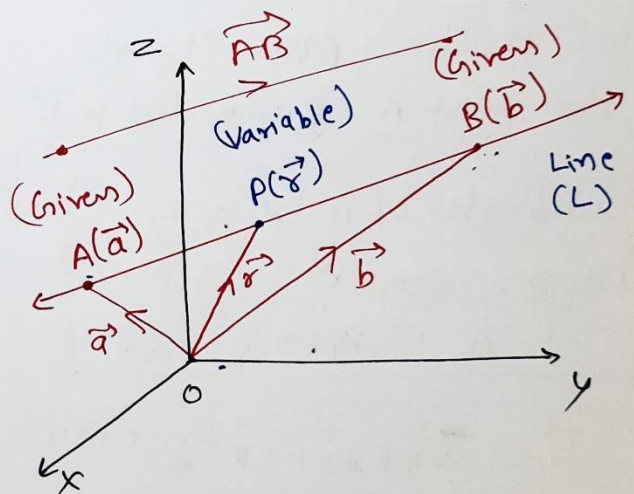 Z
AB
(Given)
(Variable)
B(b)
P(r)
Line
(L)
(Given)
A(a)
r
b
a
O
Y
X